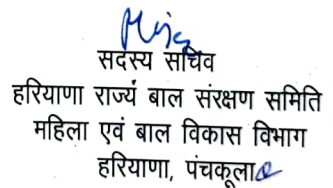 सदस्य सचिव
हरियाणा राज्य बाल संरक्षण समिति
महिला एवं बाल विकास विभाग
हरियाणा, पंचकूला